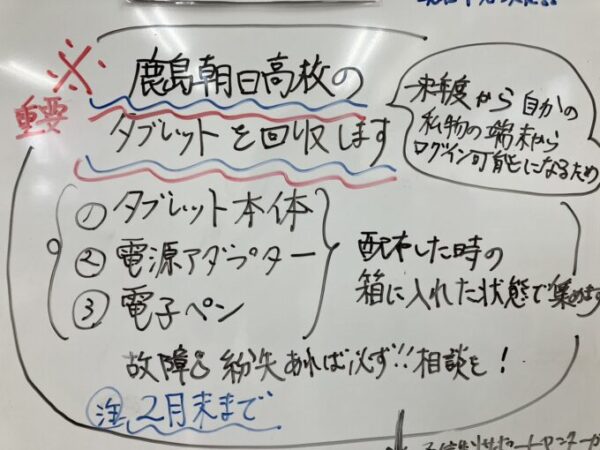 ※
重要
鹿島朝日高校の
タブレットを回収します
来年度から自分の
私物の端末から
ログイン可能になるため
① タブレット本体
② 電源アダプター
③ 電子ペン
配布した時の
箱に入れた状態で集めます
故障&紛失あれば必ず!!相談を!
注 2月末まで